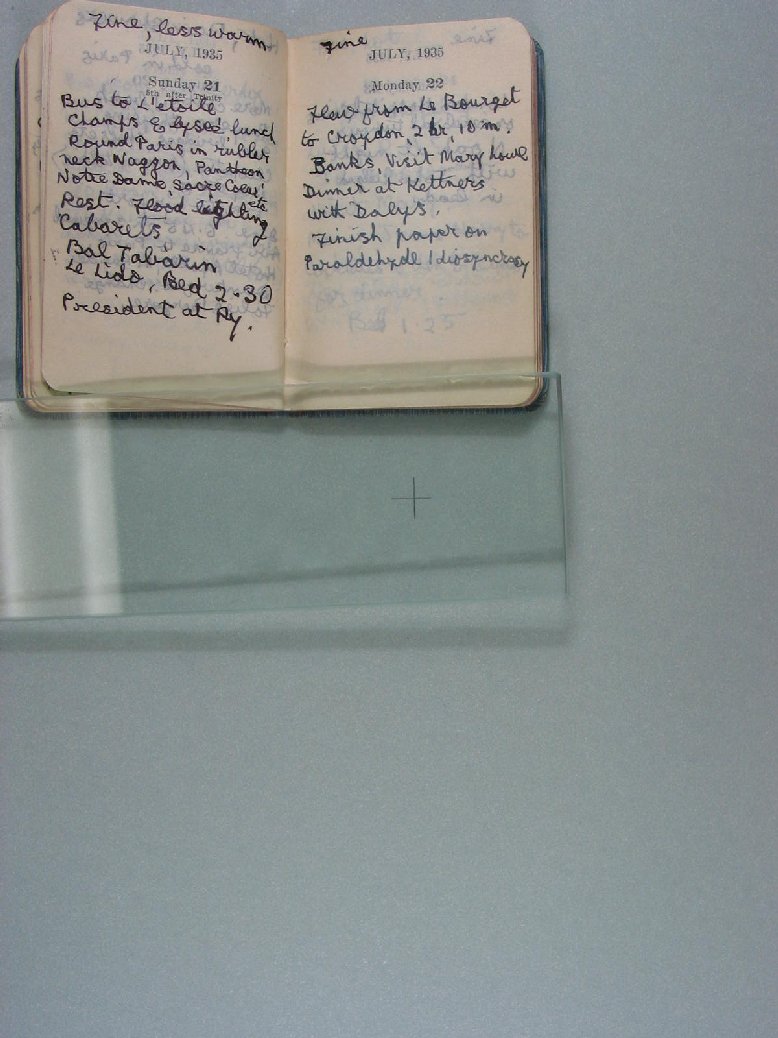 Fine, less warm
JULY, 1935
Sunday 21
5th after Trinity
Bus to L'etoile
Champs Elysée, lunch
Round Paris in rubber
neck Waggon, Pantheon
Notre Dame, Sacré Coeur etc
Rest. Flood lighting
Cabarets
Bal Tabarin
Le Lido, Bed 2.30
President at Ry.
Fine
JULY, 1935
Monday 22
Flew from Le Bourget
to Croydon 2 hr 10 m.
Banks, Visit Mary Lowe
Dinner at Kettners
with Dalys.
Finish paper on
Paraldehyde Idiosyncrasy